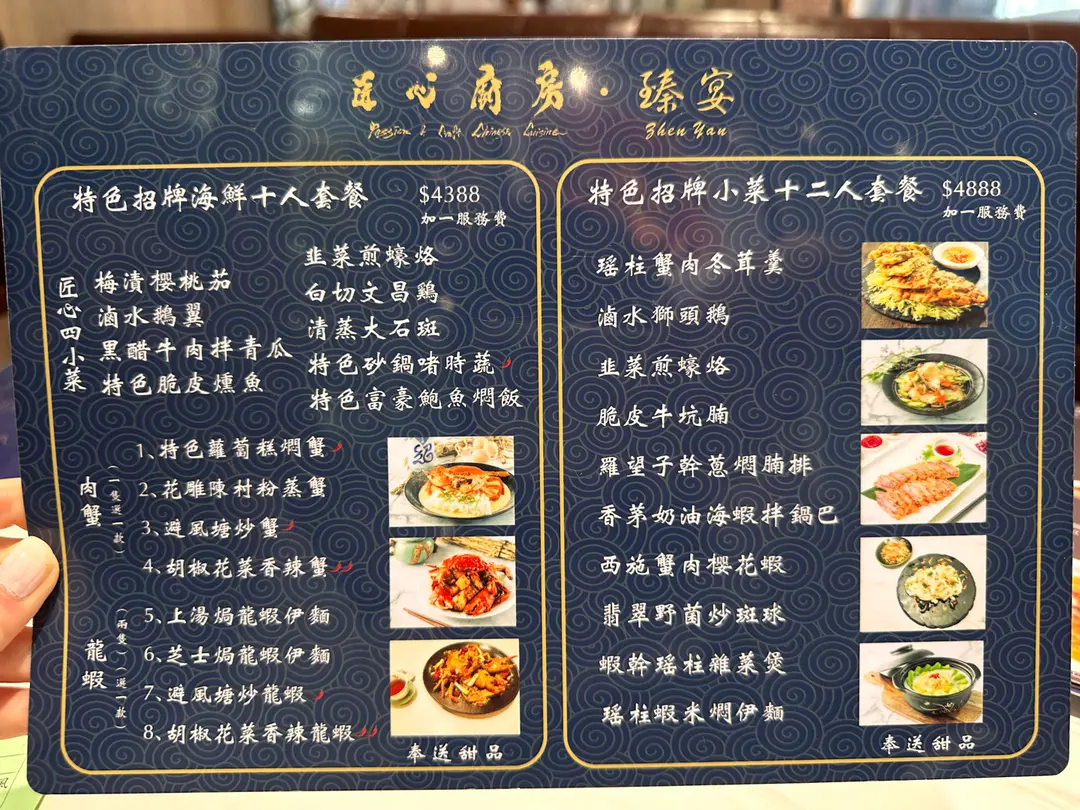 匠心廚房·臻宴
Passion & Craft Chinese Cuisine
Zhen Yan
特色招牌海鮮十人套餐 $4388
加一服務費
匠心四小菜
梅漬櫻桃茄
滷水鵝翼
黑醋牛肉拌青瓜
特色脆皮燻魚
韭菜煎蠔烙
白切文昌鷄
清蒸大石斑
特色砂鍋啫時蔬
特色富豪鮑魚燜飯
肉蟹
(一隻選一款)
1、特色蘿蔔糕燜蟹
2、花雕陳村粉蒸蟹
3、避風塘炒蟹
4、胡椒花菜香辣蟹
龍蝦
(兩隻)(選一款)
5、上湯焗龍蝦伊麵
6、芝士焗龍蝦伊麵
7、避風塘炒龍蝦
8、胡椒花菜香辣龍蝦
奉送甜品
特色招牌小菜十二人套餐 $4888
加一服務費
瑤柱蟹肉冬茸羹
滷水獅頭鵝
韭菜煎蠔烙
脆皮牛坑腩
羅望子幹蔥燜腩排
香茅奶油海蝦拌鍋巴
西施蟹肉櫻花蝦
翡翠野菌炒斑球
蝦幹瑤柱雜菜煲
瑤柱蝦米燜伊麵
奉送甜品
風